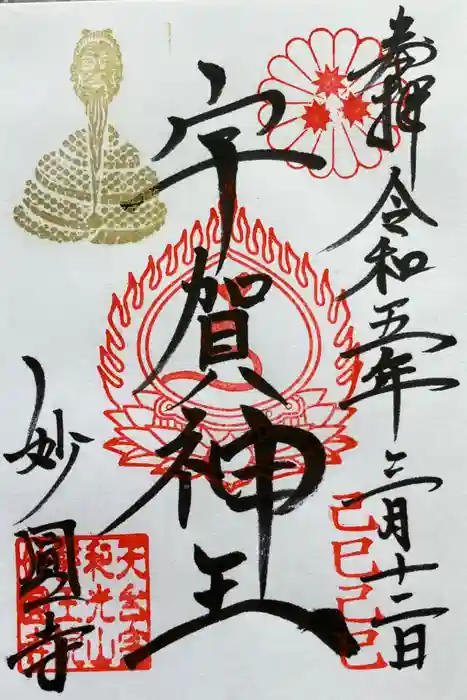 奉拝
令和五年二月十二日
己巳己巳
宇賀神王
妙圓寺
天台宗
和光山